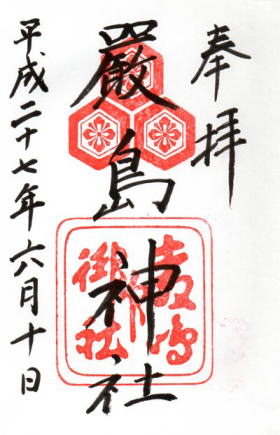 奉拝
嚴島神社
平成二十七年六月十日